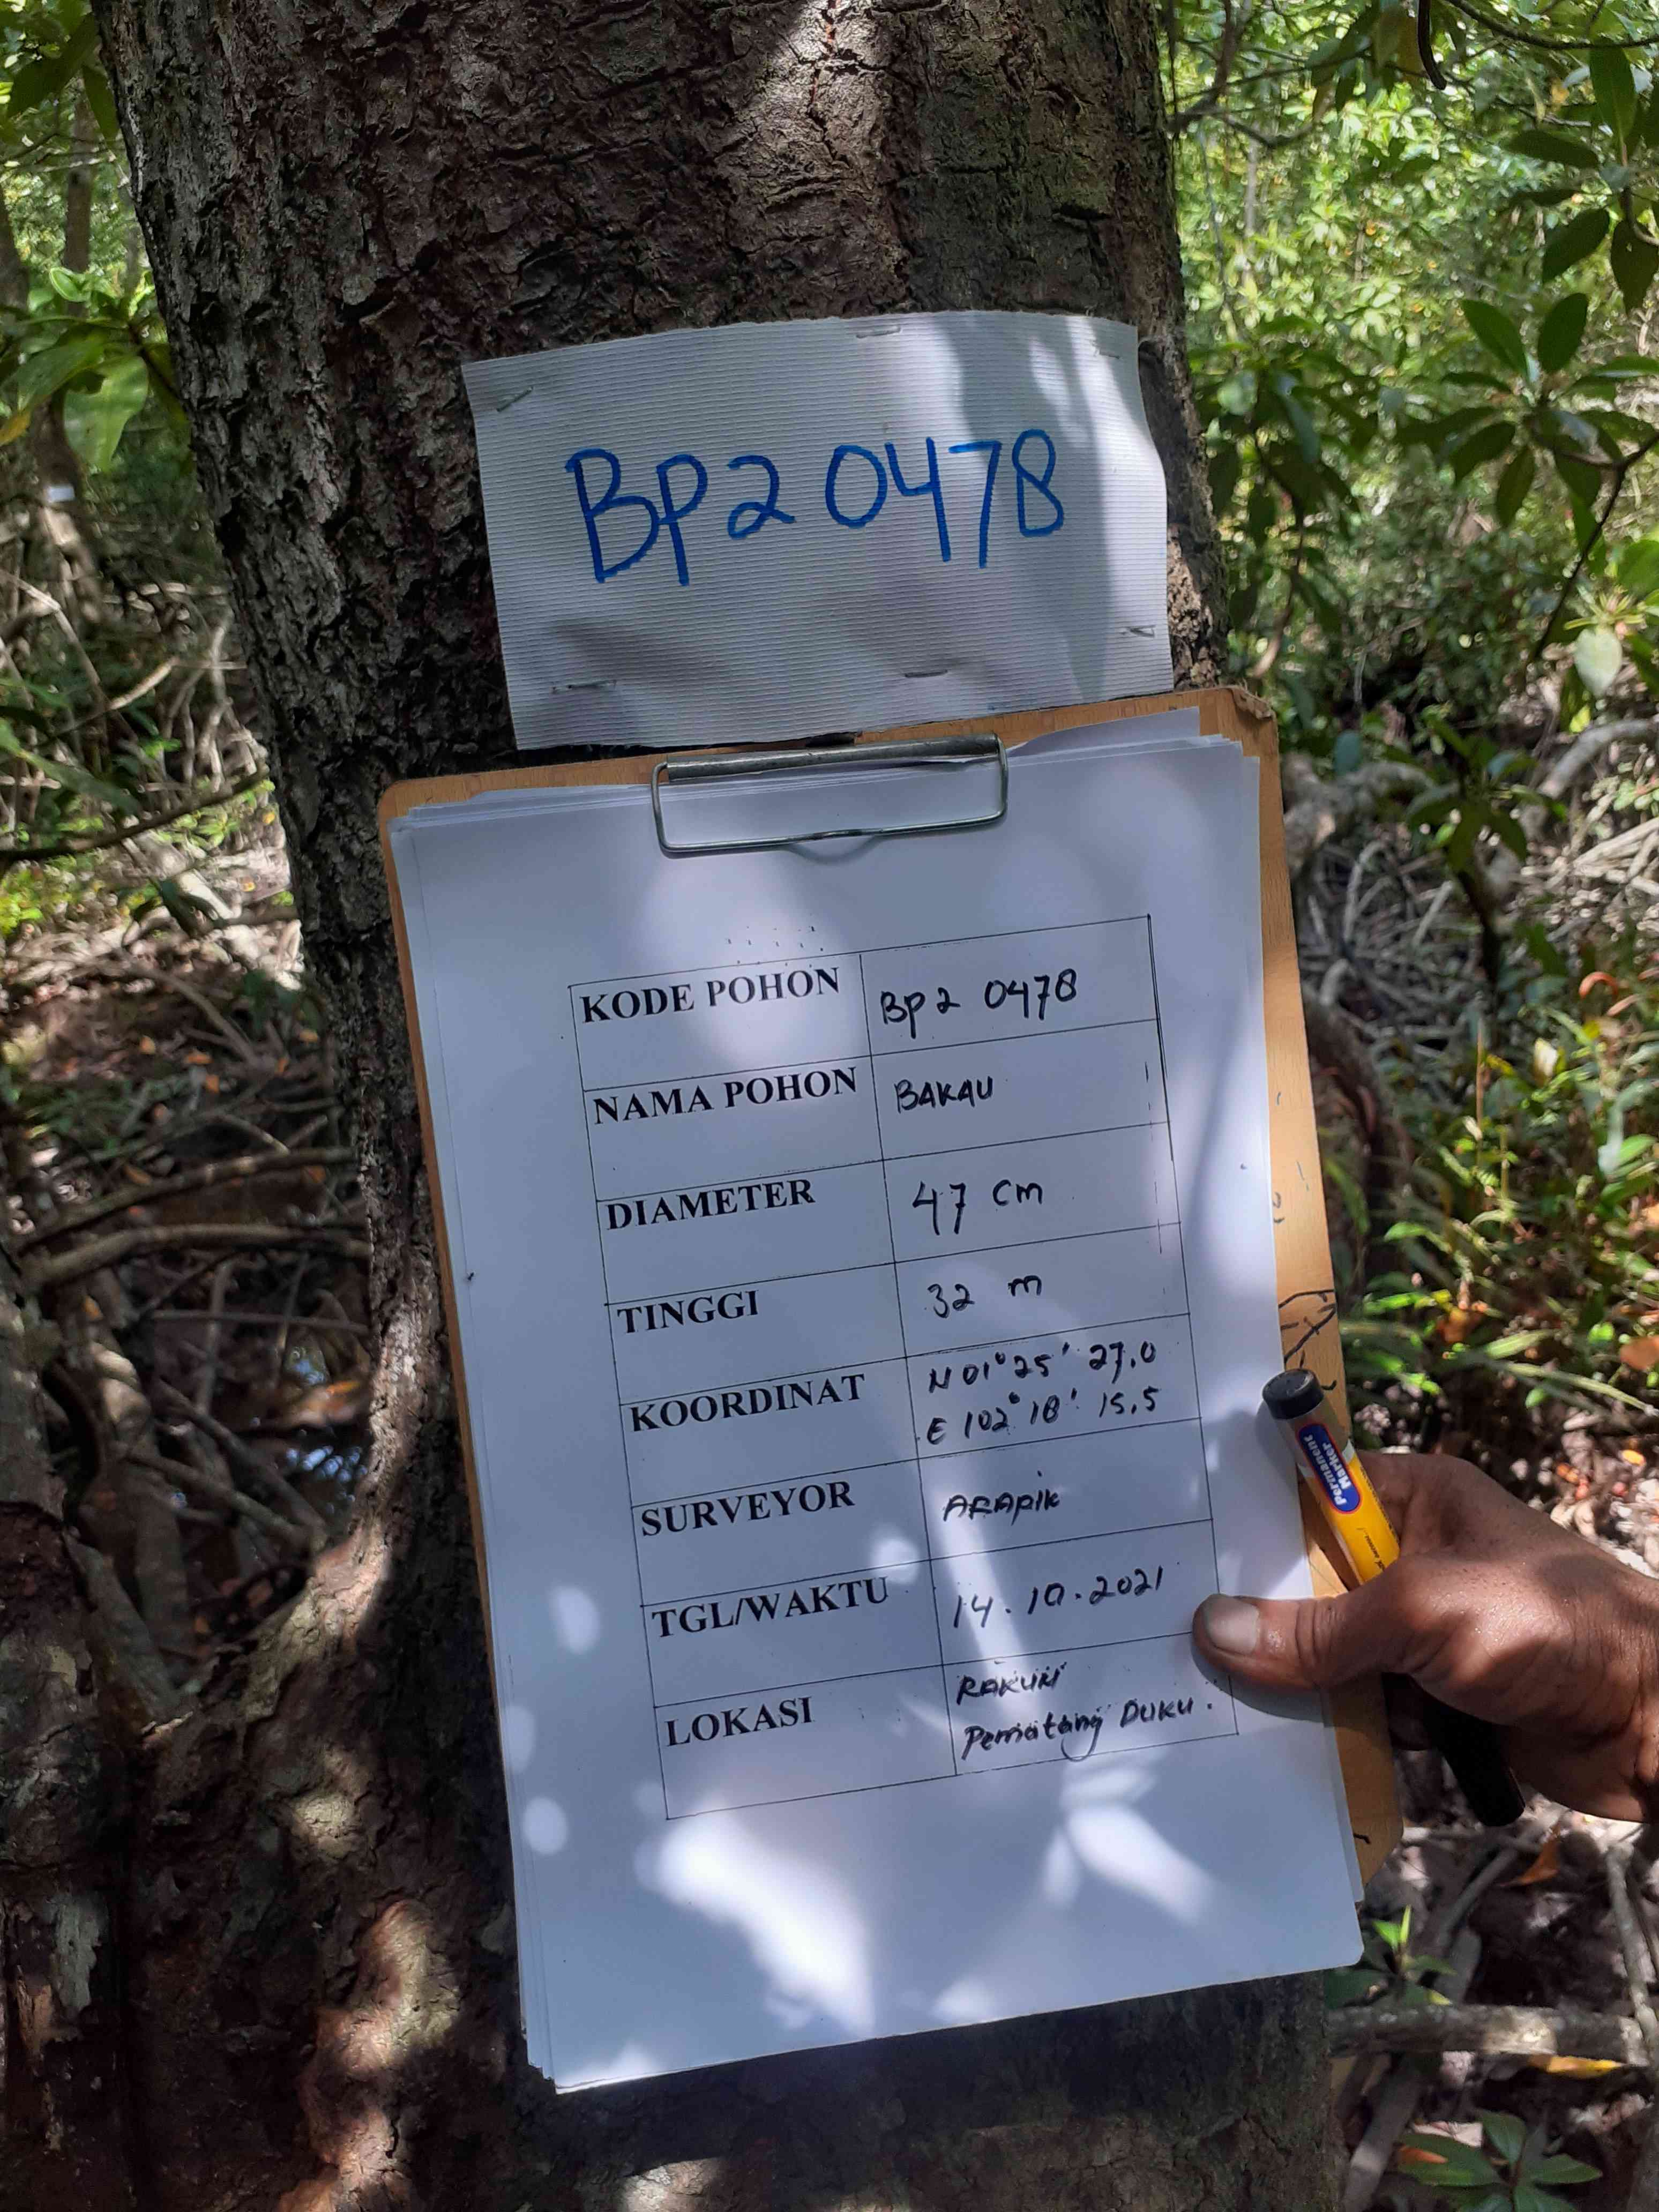 BP2 0478
KODE POHON BP2 0478
NAMA POHON BAKAU
DIAMETER 47 cm
TINGGI 32 m
KOORDINAT N 01° 25' 27.0
E 102° 18' 15.5
SURVEYOR ARAPIK
TGL/WAKTU 14.10.2021
LOKASI
Pematang DUKU.
Permanent
Marker